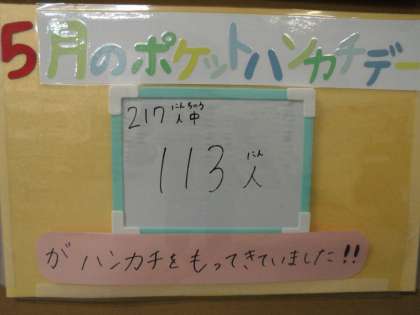 5月のポケットハンカチデー
217人中
にんちゅう
113人
にん
がハンカチをもってきていました!!